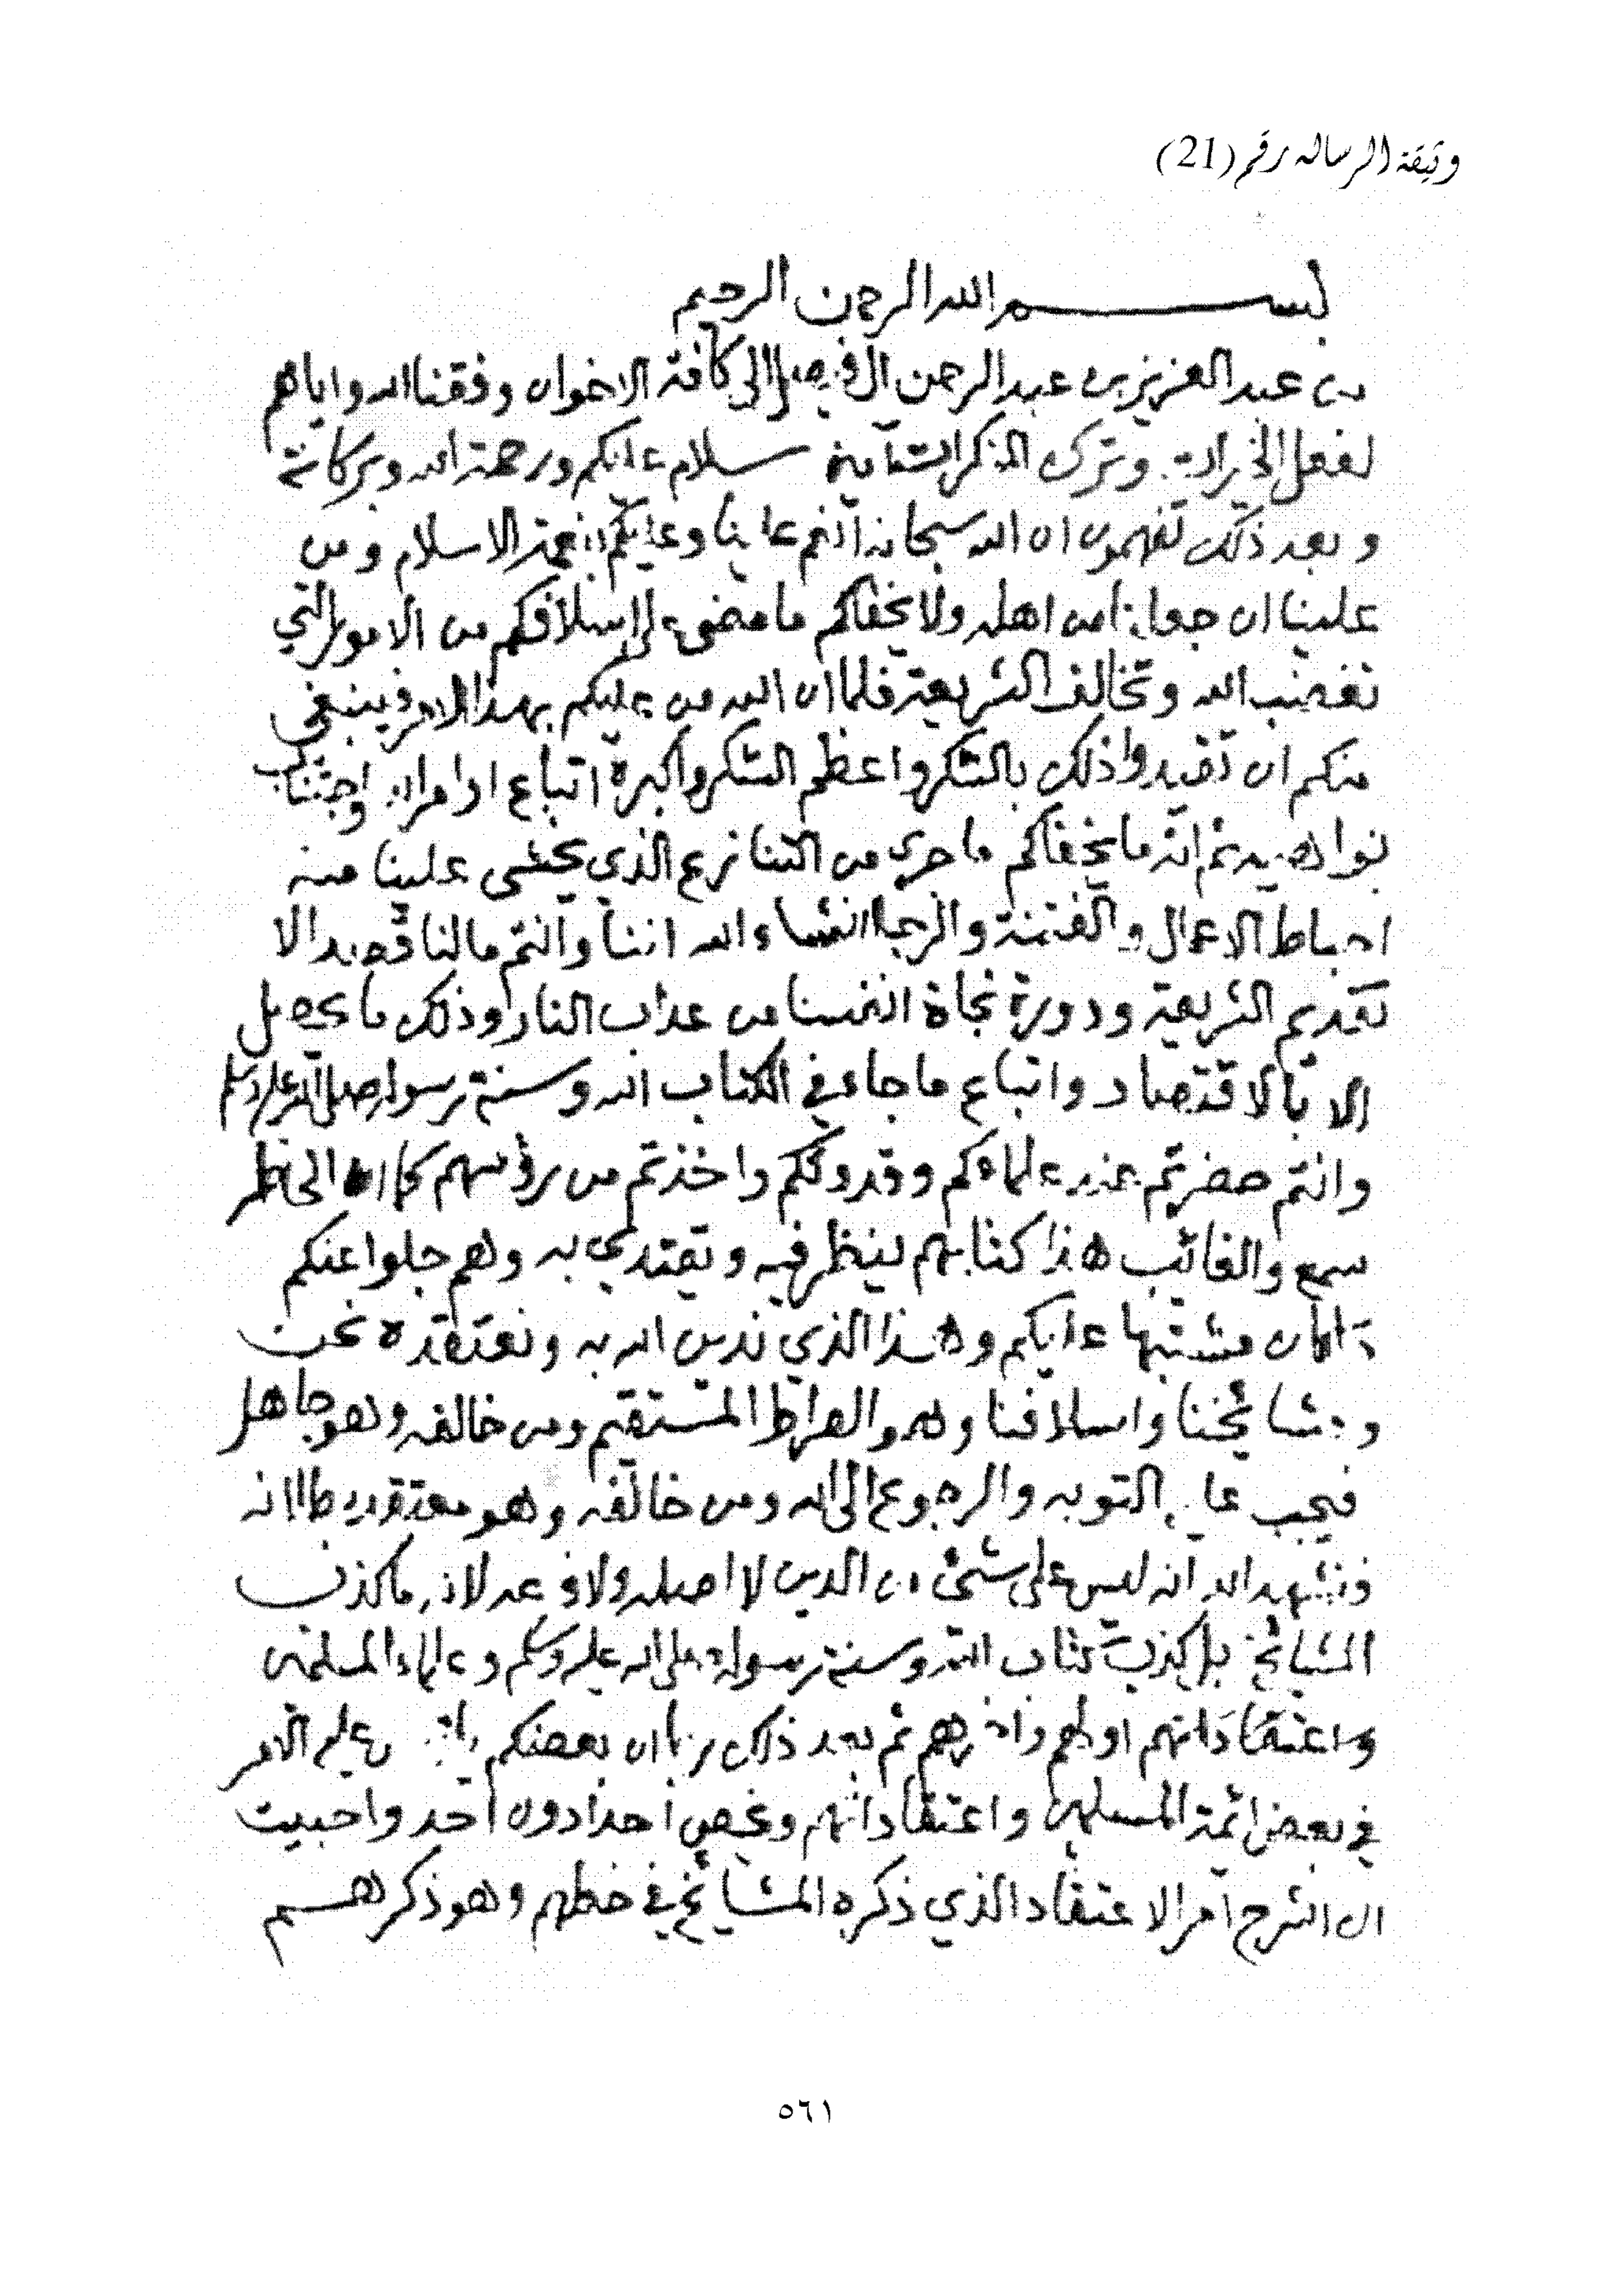 وثيقة الرساله رقم (21)
بســـــم الله الرحمن الرحيم
من عبد العزيز بن عبد الرحمن ال فيصل الى كافة الاخوان وفقنا الله واياهم
لفعل الخيرات وترك المنكرات آمين سلام عليكم ورحمة الله وبركاته
وبعد ذلك تفهمون ان الله سبحانه انعم علينا وعليكم بنعمة الاسلام ومن
علينا ان جعلنا من اهله ولا يخفاكم ما مضى على اسلافكم من الامور التي
تغضب الله وتخالف الشريعة فلما ان الله من عليكم بهذا الامر فينبغي
منكم ان تقيدوا ذلك بالشكر واعظم الشكر واكبره اتباع اوامر الله واجتناب
نواهيه ثم انه ما يخفاكم ما جرى من التنازع الذي يخشى علينا منه
احباط الاعمال والفتنة والرجا انشاء الله اننا وانتم مالنا قصد الا
تقديم الشريعة ودورة نجاة انفسنا من عذاب النار وذلك ما يحصل
الا بالاقتصاد واتباع ما جاء في الكتاب الله وسنة رسوله صلى الله عليه وسلم
وانتم حضرتم عند علماءكم وقدوتكم واخذتم من رؤسهم كلام الى حظر
سمع والغائب هذا كتابهم ينظر فيه ويقتدي به وهم جلوا عنكم
ما كان مشتبها عليكم وهذا الذي ندين الله به ونعتقده نحن
ومشايخنا واسلافنا وهو الصراط المستقيم ومن خالفه وهو جاهل
فيجب عليه التوبه والرجوع الى الله ومن خالفه وهو معتقد
فنشهد الله انه ليس على شئ من الدين لا اصله ولا فرعه لانه ما كذب
المشايخ بل كذب كتاب الله وسنة رسوله صلى الله عليه وسلم وعلماء المسلمين
واعتقاداتهم اولهم واخرهم ثم بعد ذلك ربما ان بعضكم عليه الامر
في بعض ائمة المسلمين واعتقاداتهم ونخص احدا دون احد واحبيت
ان اشرح امر الاعتقاد الذي ذكره المشايخ في خطهم وهو ذكرهم
٥٦١